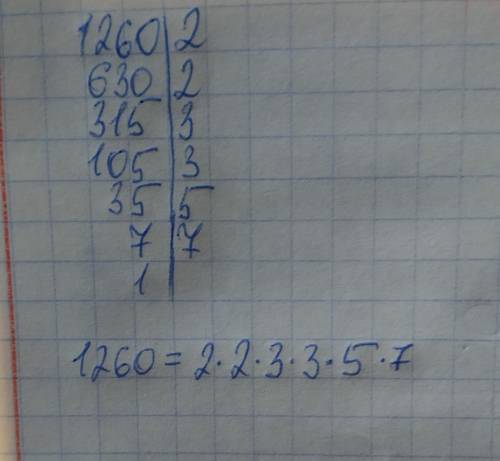 1260|2
630|2
315|3
105|3
35|5
7|7
1|
1260 = 2·2·3·3·5·7